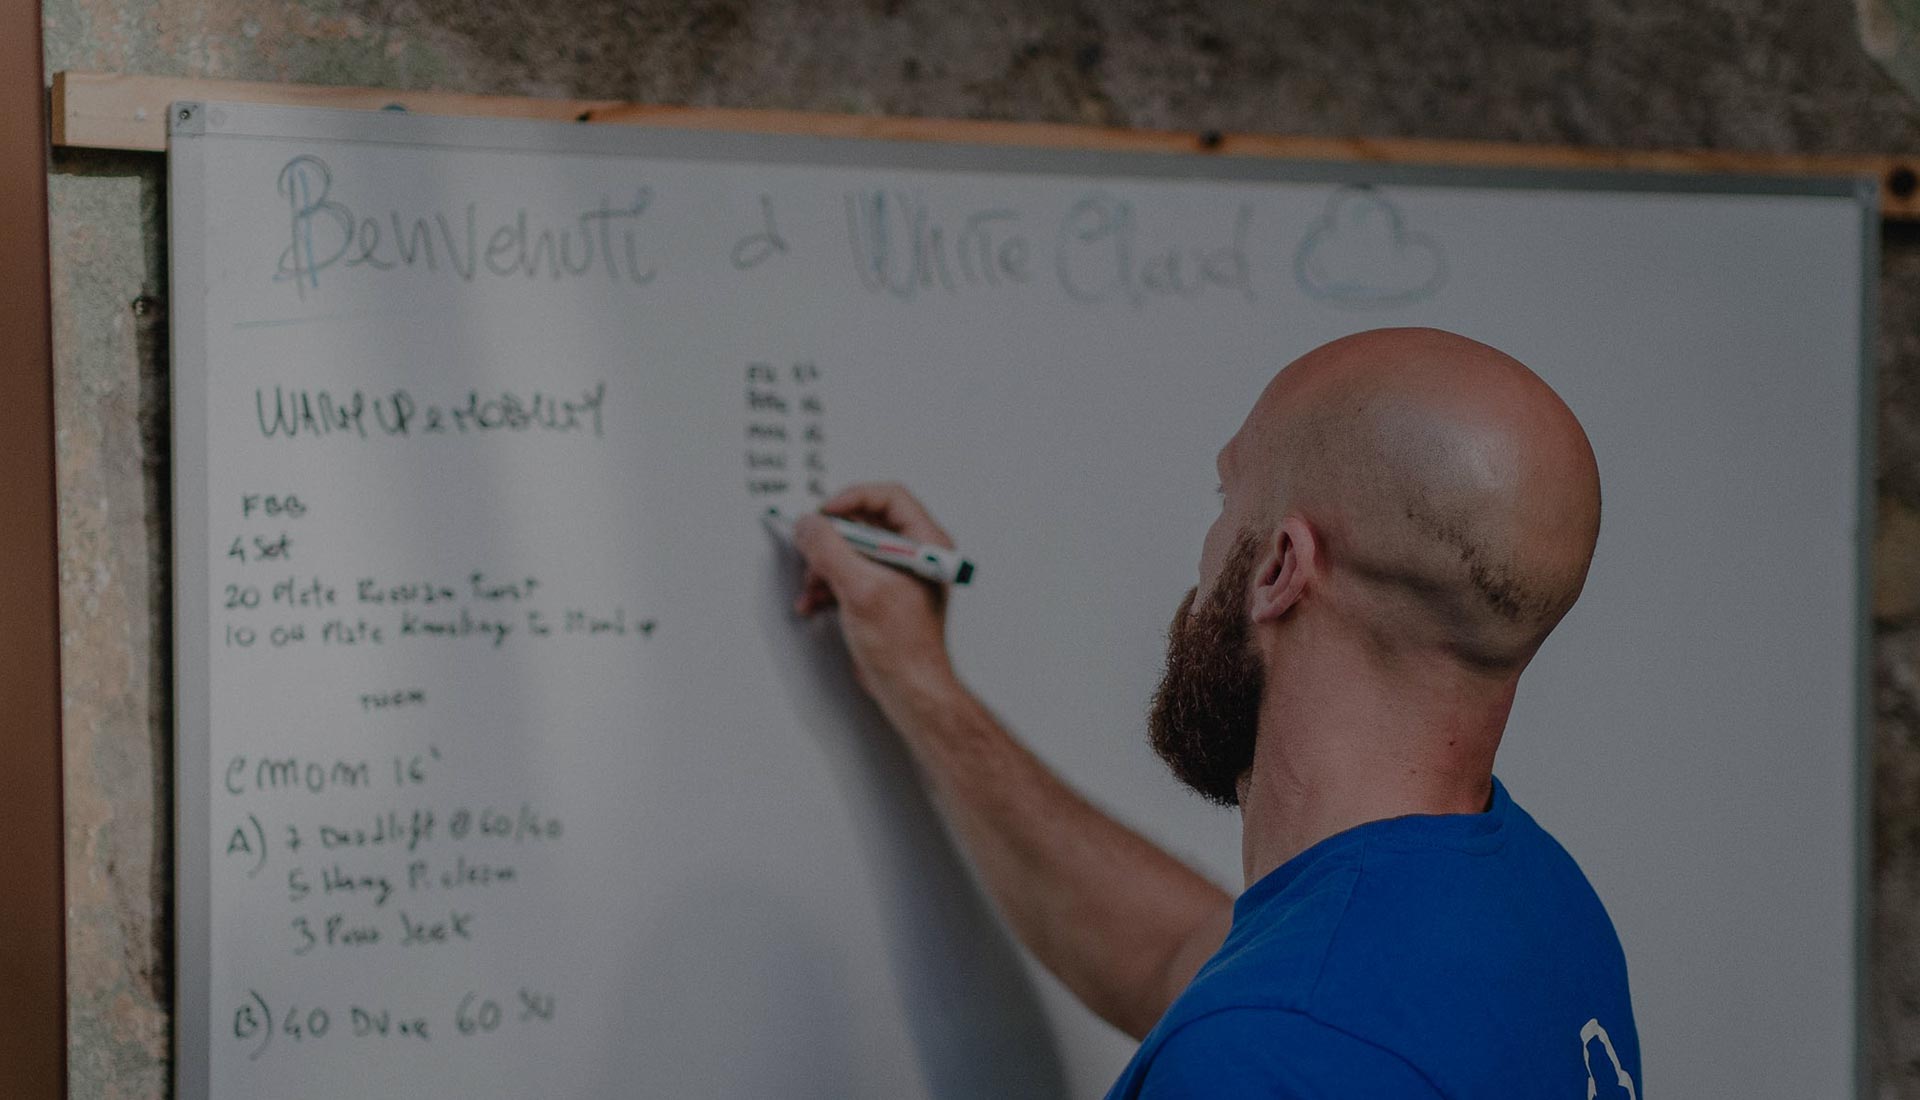 Benvenuti a White Cloud
WARM UP & MOBILITY
FBB
4 Set
20 Plate Russian Twist
10 OH Plate Kneeling To Stand up
THEN
EMOM 16'
A) 7 Deadlift @ 60/40
5 Hang P. clean
3 Push Jerk
B) 40 DU or 60 SU